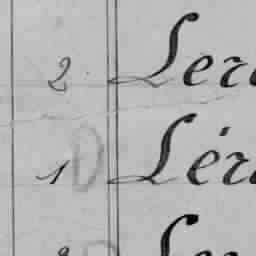 2. Ler
1 D Lér